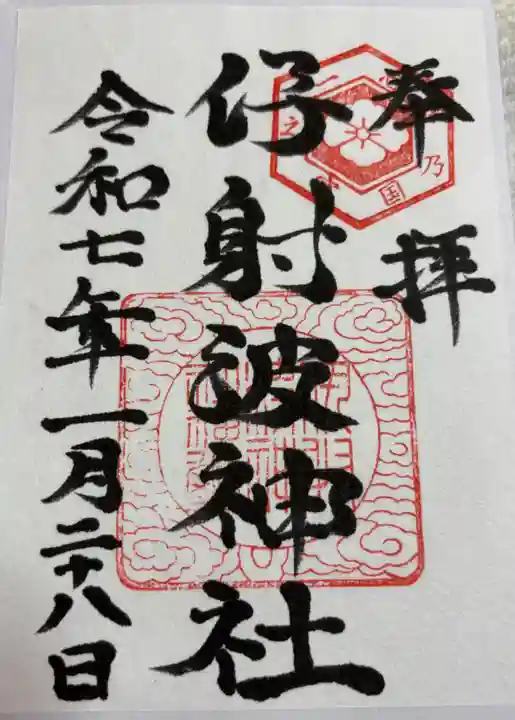 奉拝
乃国
之
伊射波神社
令和七年一月二十八日